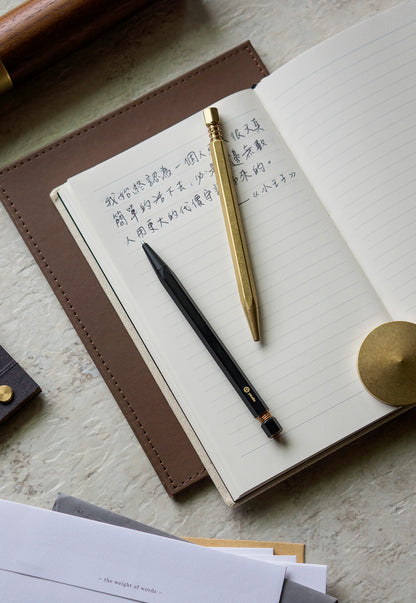 我始終認為一個人很天真
簡單的活下去，必是邊無數
人用更大的代價守來的。
—《小王子》
– the weight of words –